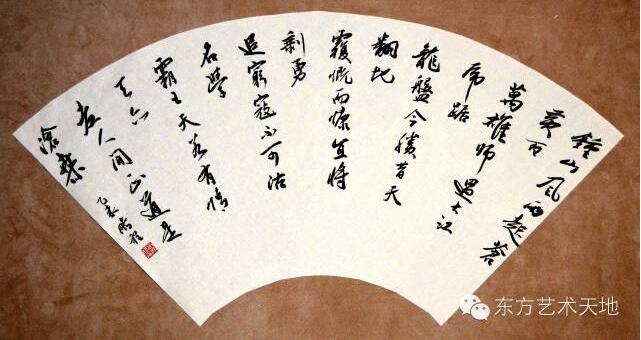 鐘山風雨起蒼
黃百
萬雄師過大江
虎踞
龍盤今勝昔天
翻地
覆慨而慷宜將
剩勇
追窮寇不可沽
名學
霸王天若有情
天亦
老人間正道是
滄桑
乙未
东方艺术天地